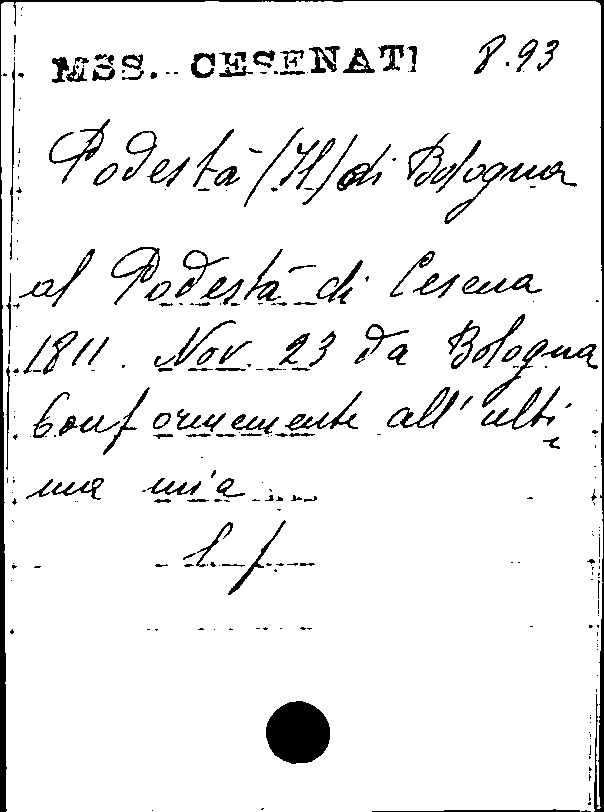 MSS. CESENATI 8.93
Podestà (Il) di Bologna
al Podestà di Cesena
1811. Nov. 23 da Bologna
Conformemente all' ulti
ma mia